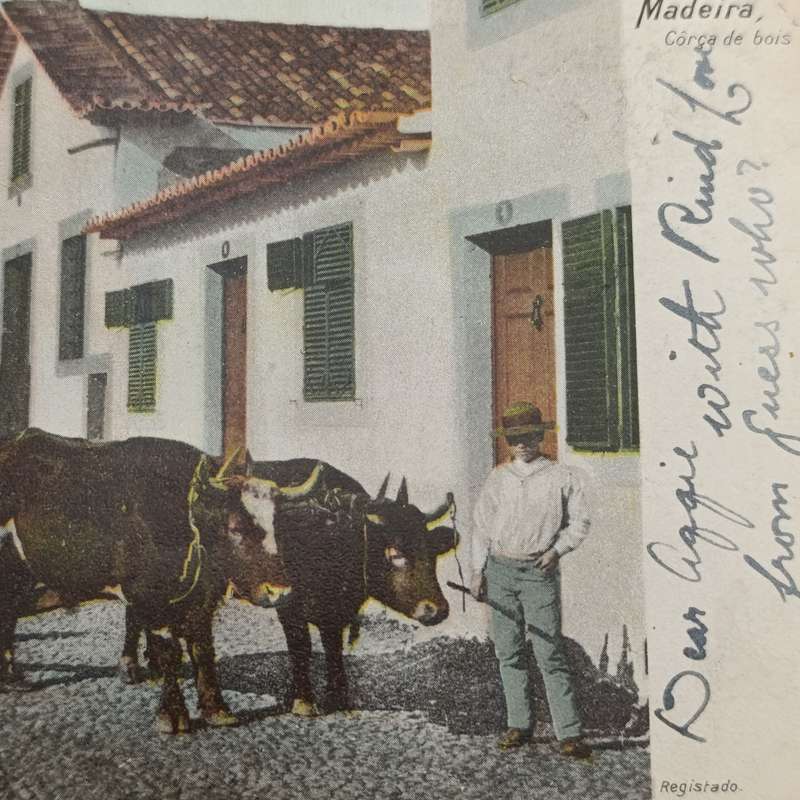 Madeira,
Côrça de bois
Dear Aggie with Kind Love
from Guess who?
Registado.